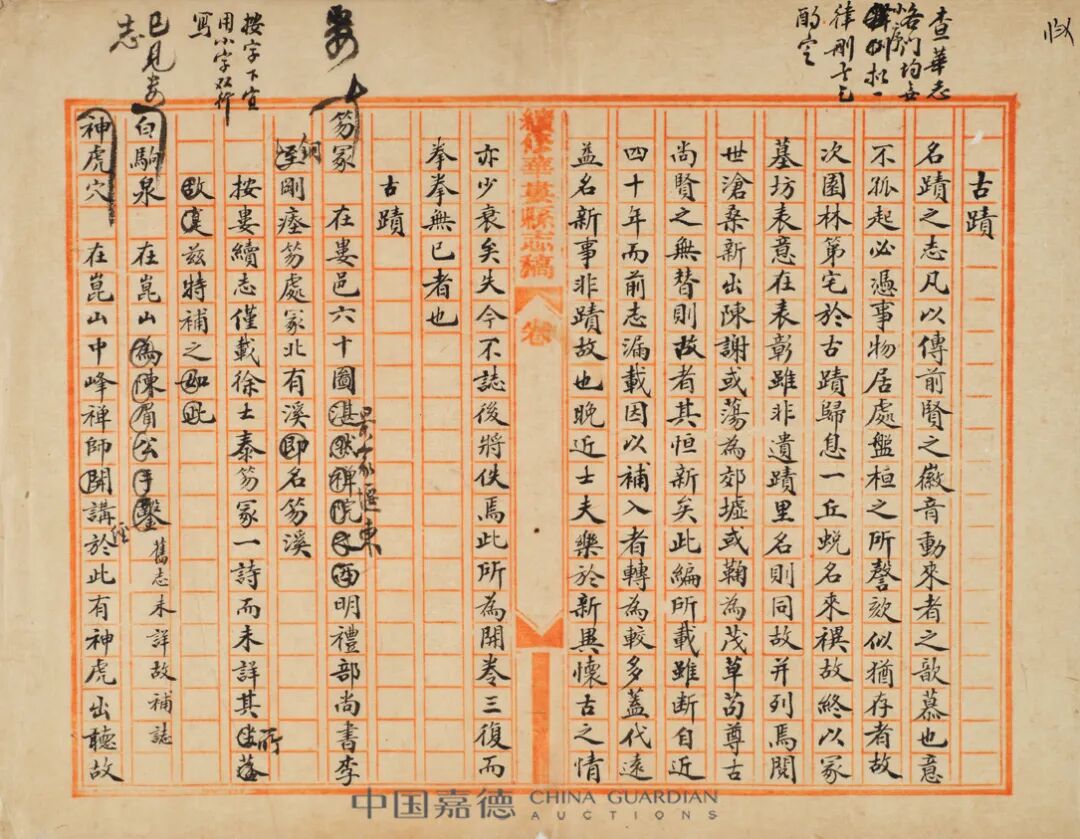 查華志
各门均無
小序
律刪去已
酌定
古蹟
名蹟之志凡以傳前賢之徽音動來者之歆慕也意
不孤起必憑事物居處盤桓之所謦欬似猶存者故
次園林第宅於古蹟歸息一丘蛻名來禩故終以冢
墓坊表意在表彰雖非遺蹟里名則同故并列焉閱
世滄桑新出陳謝或蕩為郊墟或鞠為茂草苟尊古
尚賢之無替則故者其恒新矣此編所載雖断自近
四十年而前志漏載因以補入者轉為較多蓋代遠
益名新事非蹟故也晚近士夫樂於新異懷古之情
續修華婁縣志稿
卷
亦少衰矣失今不誌後將佚焉此所為開卷三復而
拳拳無已者也
古蹟
笏冢 在婁邑六十圖湛然禅院之西明禮部尚書李
景家堰東
至剛瘞笏處冢北有溪即名笏溪
按婁續志僅載徐士泰笏冢一詩而未詳其坐落
所
故寔兹特補之如此
按字下宜
用小字双行
寫
白駒泉 在崑山為陳眉公手鑿 舊志未詳故補誌
已見婁
志
神虎穴 在崑山中峰禅師開講於此有神虎出聽故
經
中国嘉德 CHINA GUARDIAN
AUCTIONS